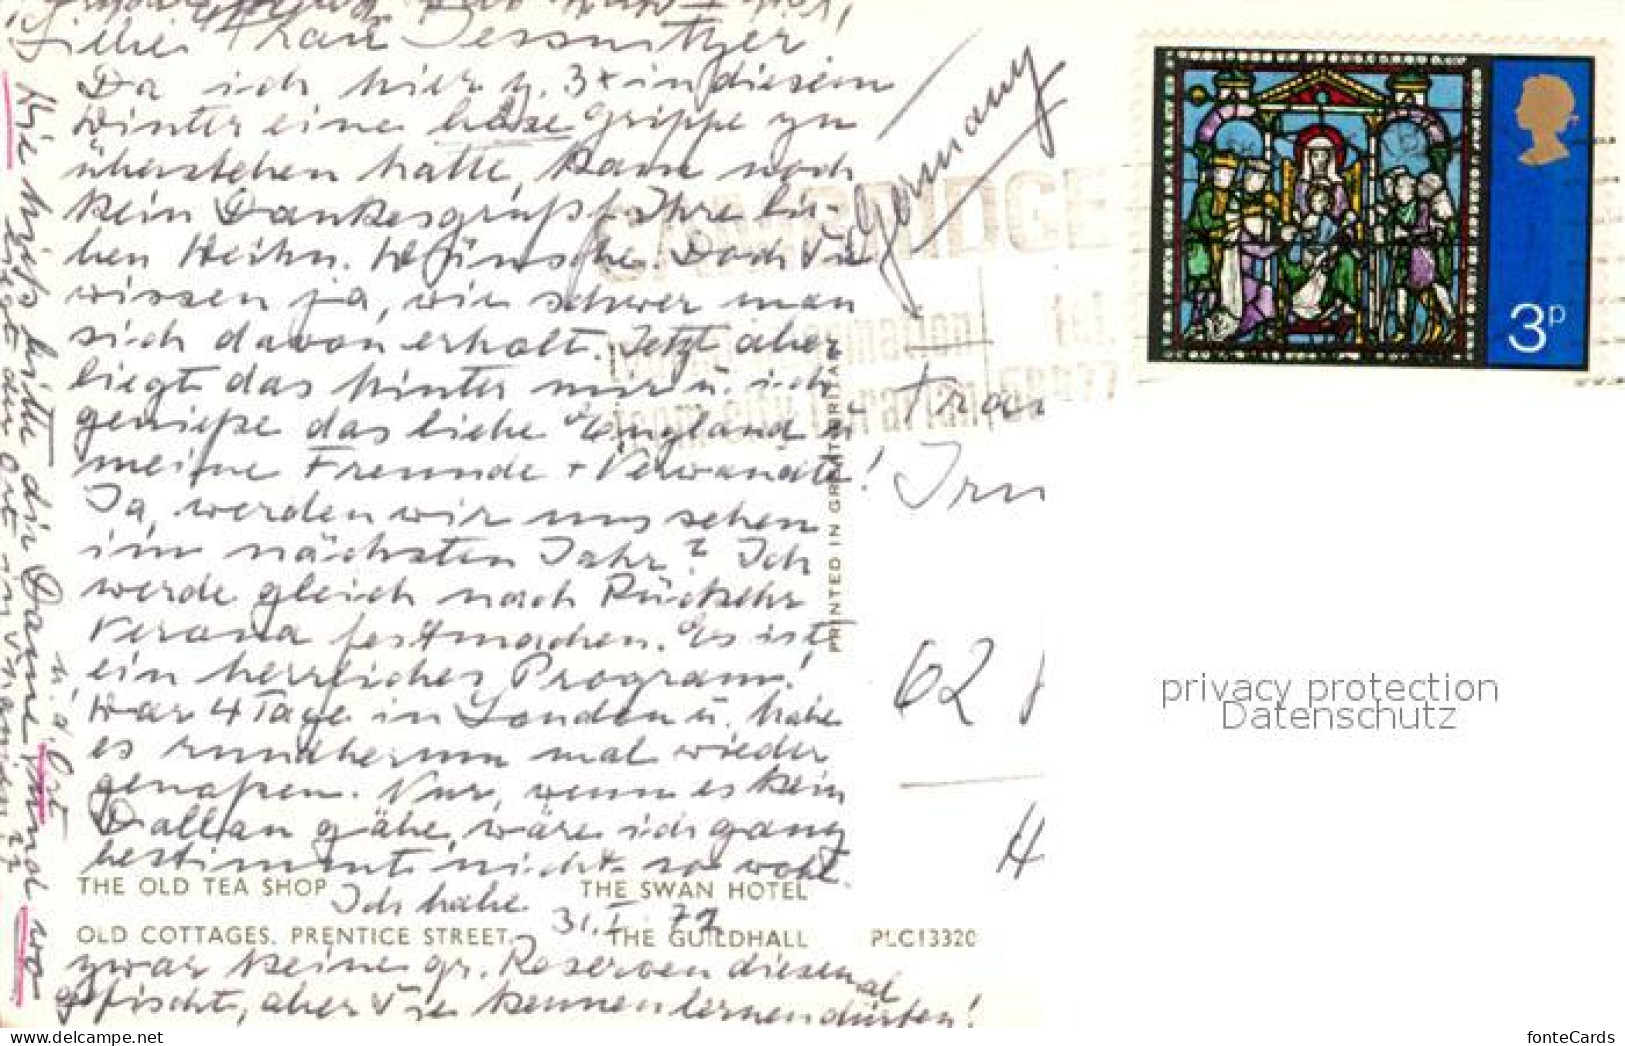 Liebe Frau Tessnitzer!
Da ich hier u. 3x in diesem
Winter eine böse Grippe zu
überstehen hatte, kam noch
kein Dankesgruß f. Ihre lie-
ben Weihn. Wünsche. Doch Sie
wissen ja, wie schwer man
sich davon erholt. Jetzt aber
liegt das hinter mir u. ich
genieße das liebe England u.
meine Freunde + Verwandte!
Ja, werden wir uns sehen
im nächsten Jahr? Ich
werde gleich nach Rückkehr
Verona festmachen. Es ist
ein herrliches Program!
War 4 Tage in London u. habe
es rundherum mal wieder
genoßen. Nur, wenn es kein
gäbe, wäre ich ganz
bestimmt nicht so wohl.
Ich habe
31.I.72
zwar keine gr. Reserven diesmal
gefischt, aber Sie kennenlernen dürfen!
Wie hieß bitte die Dame und wo
u. d. Ort
THE OLD TEA SHOP
THE SWAN HOTEL
OLD COTTAGES, PRENTICE STREET
THE GUILDHALL
PLC13320
PRINTED IN GREAT BRITAIN
Germany
CAMBRIDGE
information
tel.
from city librarian 58977
3P
Frau
Irm
62
H
privacy protection
Datenschutz
fonteCards